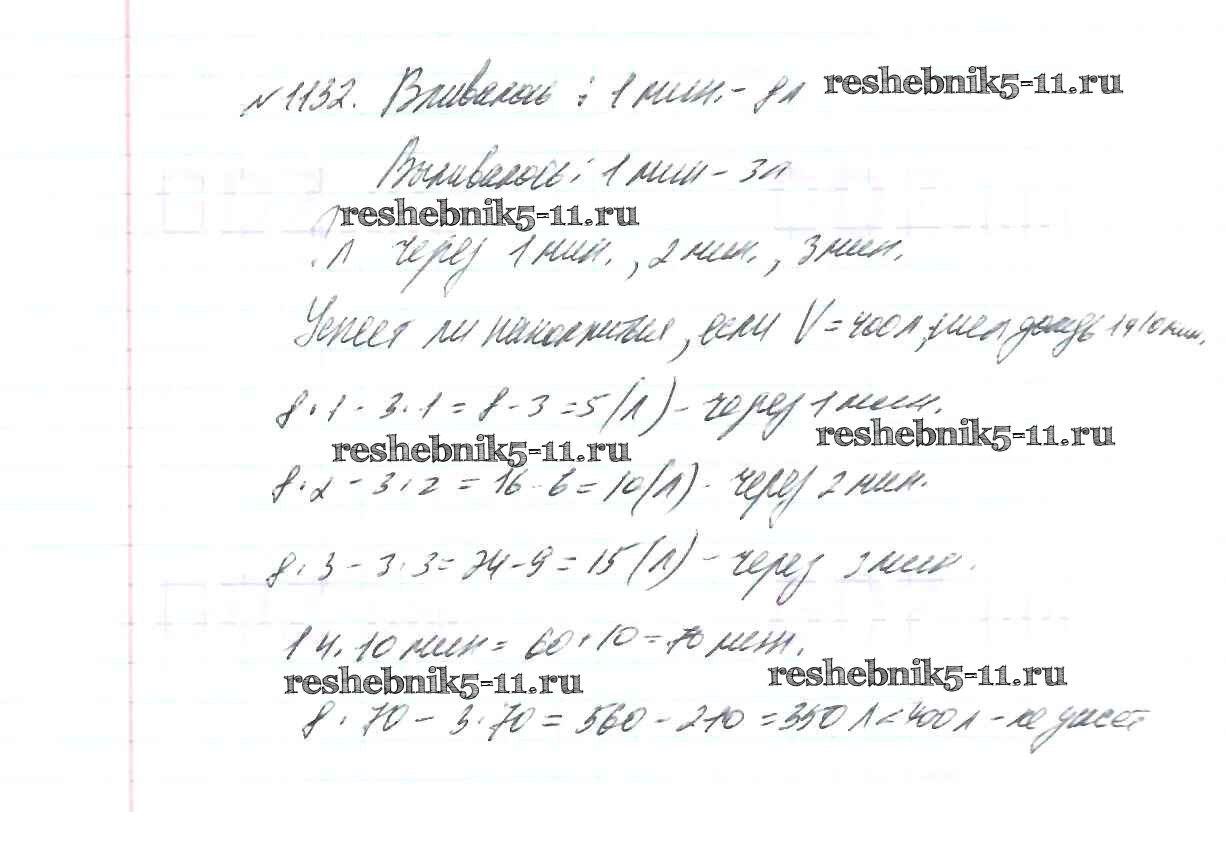 №1132. Вливалось: 1 мин. - 8 л reshebnik5-11.ru
Выливалось: 1 мин - 3 л
reshebnik5-11.ru
л через 1 мин., 2 мин., 3 мин.
Успеет ли наполнится, если V = 400 л, шел дождь 1 ч 10 мин.
8 · 1 - 3 · 1 = 8 - 3 = 5 (л) - через 1 мин.
reshebnik5-11.ru reshebnik5-11.ru
8 · 2 - 3 · 2 = 16 - 6 = 10 (л) - через 2 мин.
8 · 3 - 3 · 3 = 24 - 9 = 15 (л) - через 3 мин.
1 ч. 10 мин = 60 + 10 = 70 мин.
reshebnik5-11.ru reshebnik5-11.ru
8 · 70 - 3 · 70 = 560 - 210 = 350 л < 400 л - не успеет